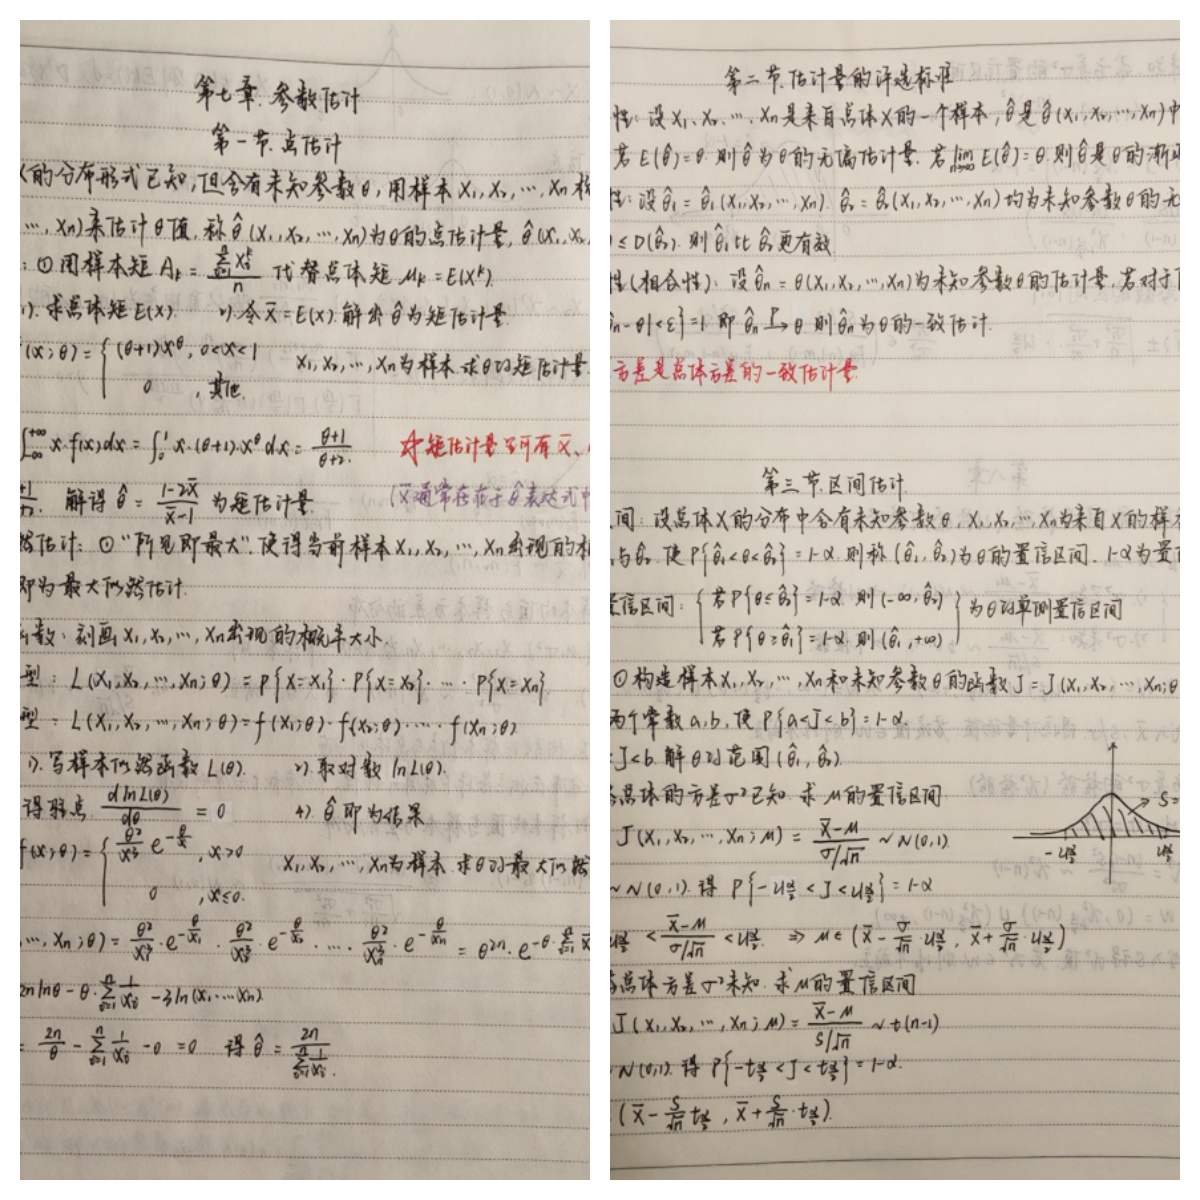 第七章.参数估计
第一节.点估计
X的分布形式已知,但含有未知参数θ,用样本X₁,X₂,…,Xn构
…,Xn)来估计θ值,称θ̂(X₁,X₂,…,Xn)为θ的点估计量,θ̂(x₁,x₂,
:①用样本矩Aₖ=∑ᵢ₌₁ⁿXᵢᵏ/n 代替总体矩μₖ=E(Xᵏ).
1).求总体矩E(X). 2).令X̄=E(X).解出θ̂为矩估计量.
f(x;θ)={(θ+1)x^θ,0<x<1 X₁,X₂,…,Xn为样本.求θ的矩估计量.
0 ,其他.
∫₋∞^{+∞}x·f(x)dx=∫₀¹x·(θ+1)·x^θdx=(θ+1)/(θ+2). ☆矩估计量写可有X̄、
解得θ̂=(1-2X̄)/(X̄-1)为矩估计量. (X̄通常存在于θ̂表达式中
然估计:①"所见即最大".使得当前样本X₁,X₂,…,Xn出现的概
即为最大似然估计.
函数:刻画X₁,X₂,…,Xn出现的概率大小.
型:L(X₁,X₂,…,Xn;θ)=P{X=X₁}·P{X=X₂}·…·P{X=Xn}
型:L(X₁,X₂,…,Xn;θ)=f(X₁;θ)·f(X₂;θ)·…·f(Xn;θ)
1).写样本似然函数L(θ). 2).取对数lnL(θ).
得驻点 dlnL(θ)/dθ=0 4).θ̂即为结果
f(x;θ)={θ²/x³ e^{-θ/x},x>0 X₁,X₂,…,Xn为样本.求θ的最大似然
0 ,x≤0.
…,Xn;θ)=θ²/X₁³·e^{-θ/X₁}·θ²/X₂³·e^{-θ/X₂}·…·θ²/Xn³·e^{-θ/Xn}=θ²ⁿ·e^{-θ·∑ᵢ₌₁ⁿ
2nlnθ-θ·∑ᵢ₌₁ⁿ1/Xᵢ-3ln(X₁…Xn).
=2n/θ-∑ᵢ₌₁ⁿ1/Xᵢ-0=0 得θ̂=2n/∑ᵢ₌₁ⁿ1/Xᵢ.
第二节.估计量的评选标准
性:设X₁、X₂、…、Xn是来自总体X的一个样本,θ̂是θ̂(X₁,X₂,…,Xn)中
若E(θ̂)=θ.则θ̂为θ的无偏估计量.若lim n→∞ E(θ̂)=θ.则θ̂是θ的渐近
性:设θ̂₁=θ̂₁(X₁,X₂,…,Xn).θ̂₂=θ̂₂(X₁,X₂,…,Xn)均为未知参数θ的无
)≤D(θ̂₂).则θ̂₁比θ̂₂更有效
性(相合性):设θ̂n=θ(X₁,X₂,…,Xn)为未知参数θ的估计量,若对于
θ̂n-θ|<ε}=1.即θ̂n P→θ 则θ̂n为θ的一致估计.
方差是总体方差的一致估计量.
第三节.区间估计
间:设总体X的分布中含有未知参数θ,X₁,X₂,…,Xn为来自X的样本
与θ̂₂.使P{θ̂₁<θ<θ̂₂}=1-α.则称(θ̂₁,θ̂₂)为θ的置信区间.1-α为置
置信区间:{若P{θ≤θ̂₂}=1-α.则(-∞,θ̂₂)
若P{θ≥θ̂₁}=1-α.则(θ̂₁,+∞)}为θ的单侧置信区间
①构造样本X₁,X₂,…,Xn和未知参数θ的函数J=J(X₁,X₂,…,Xn;θ
两个常数a,b,使P{a<J<b}=1-α.
J<b.解θ的范围(θ̂₁,θ̂₂).
总体的方差σ²已知.求μ的置信区间.
J(X₁,X₂,…,Xn;μ)=(X̄-μ)/(σ/√n)~N(0,1).
S=
-u_{α/2} u_{α/2}
~N(0,1).得P{-u_{α/2}<J<u_{α/2}}=1-α
u_{α/2}<(X̄-μ)/(σ/√n)<u_{α/2}. ⇒μ∈(X̄-σ/√n·u_{α/2},X̄+σ/√n·u_{α/2})
总体方差σ²未知.求μ的置信区间
J(X₁,X₂,…,Xn;μ)=(X̄-μ)/(S/√n)~t(n-1)
~N(0,1).得P{-t_{α/2}<J<t_{α/2}}=1-α.
(X̄-S/√n t_{α/2},X̄+S/√n·t_{α/2}).